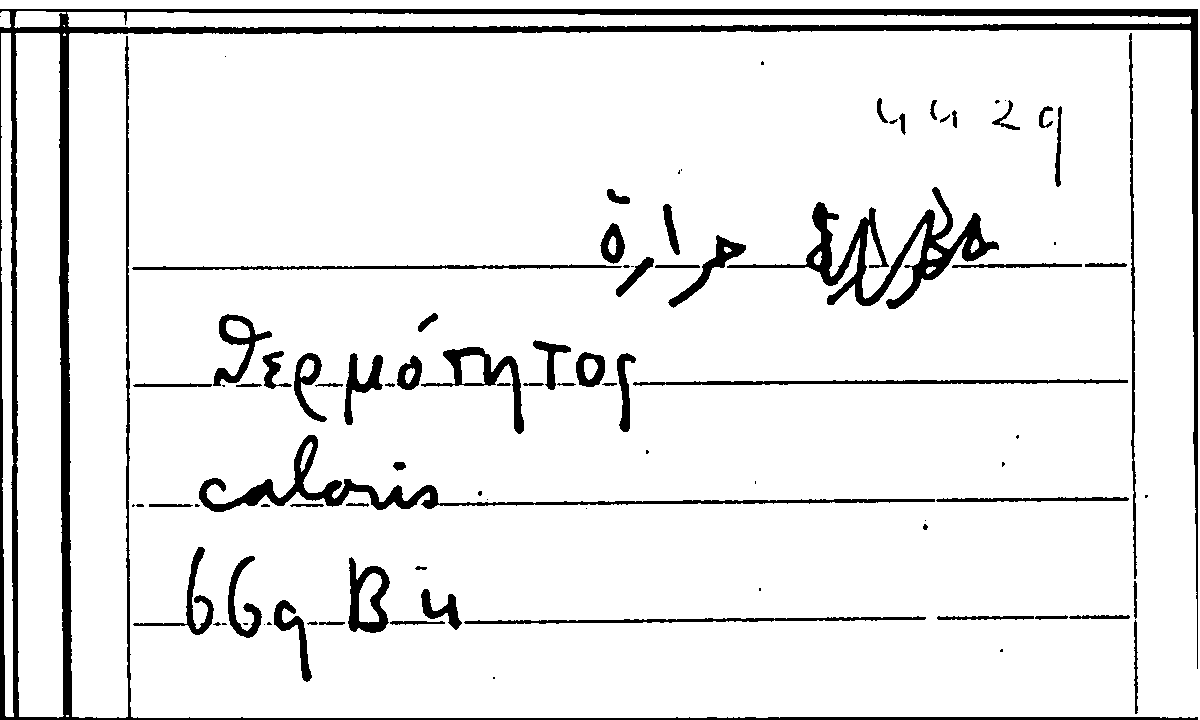 4429
حرارة
θερμότητος
caloris
669 B 4